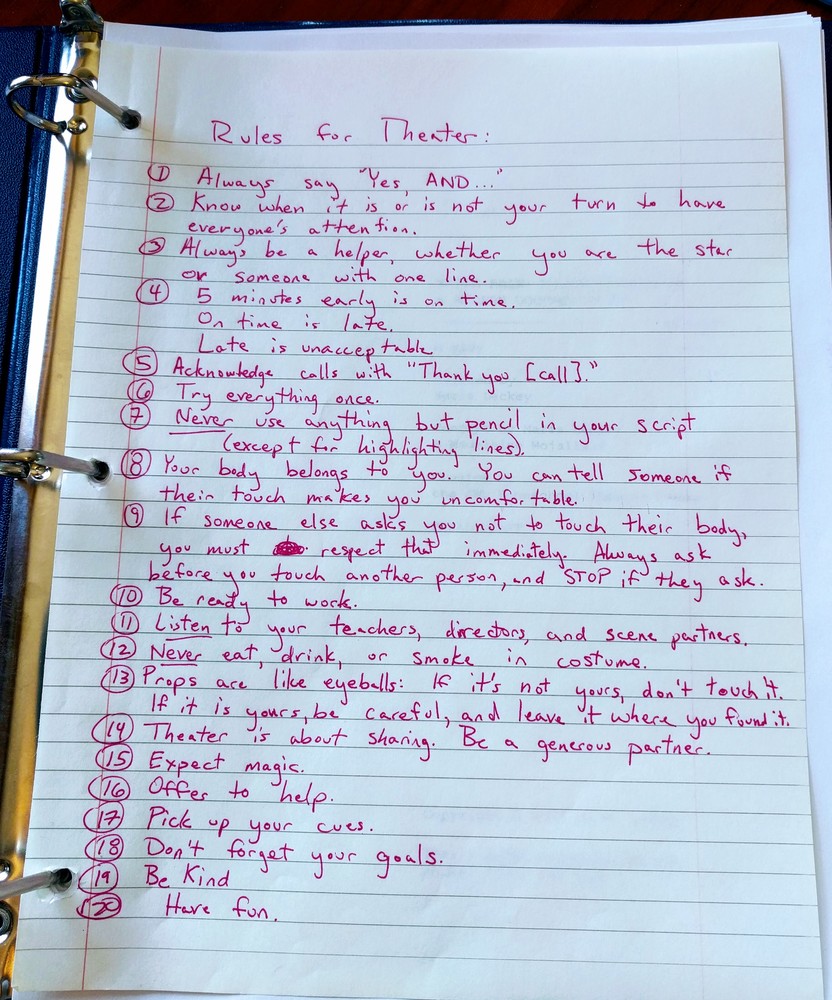 Rules for Theater:
① Always say "Yes, AND..."
② Know when it is or is not your turn to have
everyone's attention.
③ Always be a helper, whether you are the star
or someone with one line.
④ 5 minutes early is on time.
On time is late.
Late is unacceptable
⑤ Acknowledge calls with "Thank you [call]."
⑥ Try everything once.
⑦ Never use anything but pencil in your script
(except for highlighting lines).
⑧ Your body belongs to you. You can tell someone if
their touch makes you uncomfortable.
⑨ If someone else asks you not to touch their body,
you must respect that immediately. Always ask
before you touch another person, and STOP if they ask.
⑩ Be ready to work.
⑪ Listen to your teachers, directors, and scene partners.
⑫ Never eat, drink, or smoke in costume.
⑬ Props are like eyeballs: If it's not yours, don't touch it.
If it is yours, be careful, and leave it where you found it.
⑭ Theater is about sharing. Be a generous partner.
⑮ Expect magic.
⑯ Offer to help.
⑰ Pick up your cues.
⑱ Don't forget your goals.
⑲ Be Kind
⑳ Have fun.